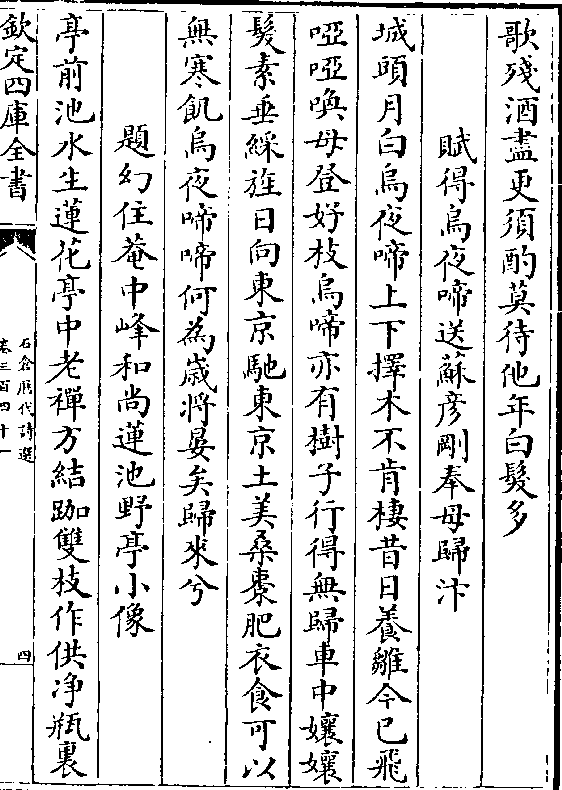 歌殘酒盡更須酌莫待他年白髮多
賦得烏夜啼送蘇彥剛奉母歸汴
城頭月白烏夜啼上下擇木不肯棲昔日養雛今已飛
啞啞喚母登好枝烏啼亦有樹子行得無歸車中孃孃
髮素垂綵旌日向東京馳東京土美桑棗肥衣食可以
無寒飢烏夜啼啼何為歲將晏矣歸來兮
題幻住菴中峰和尚蓮池野亭小像
亭前池水生蓮花亭中老禪方結跏雙枝作供净瓶裏
欽定四庫全書
石倉歷代詩選
卷三百四十一
四